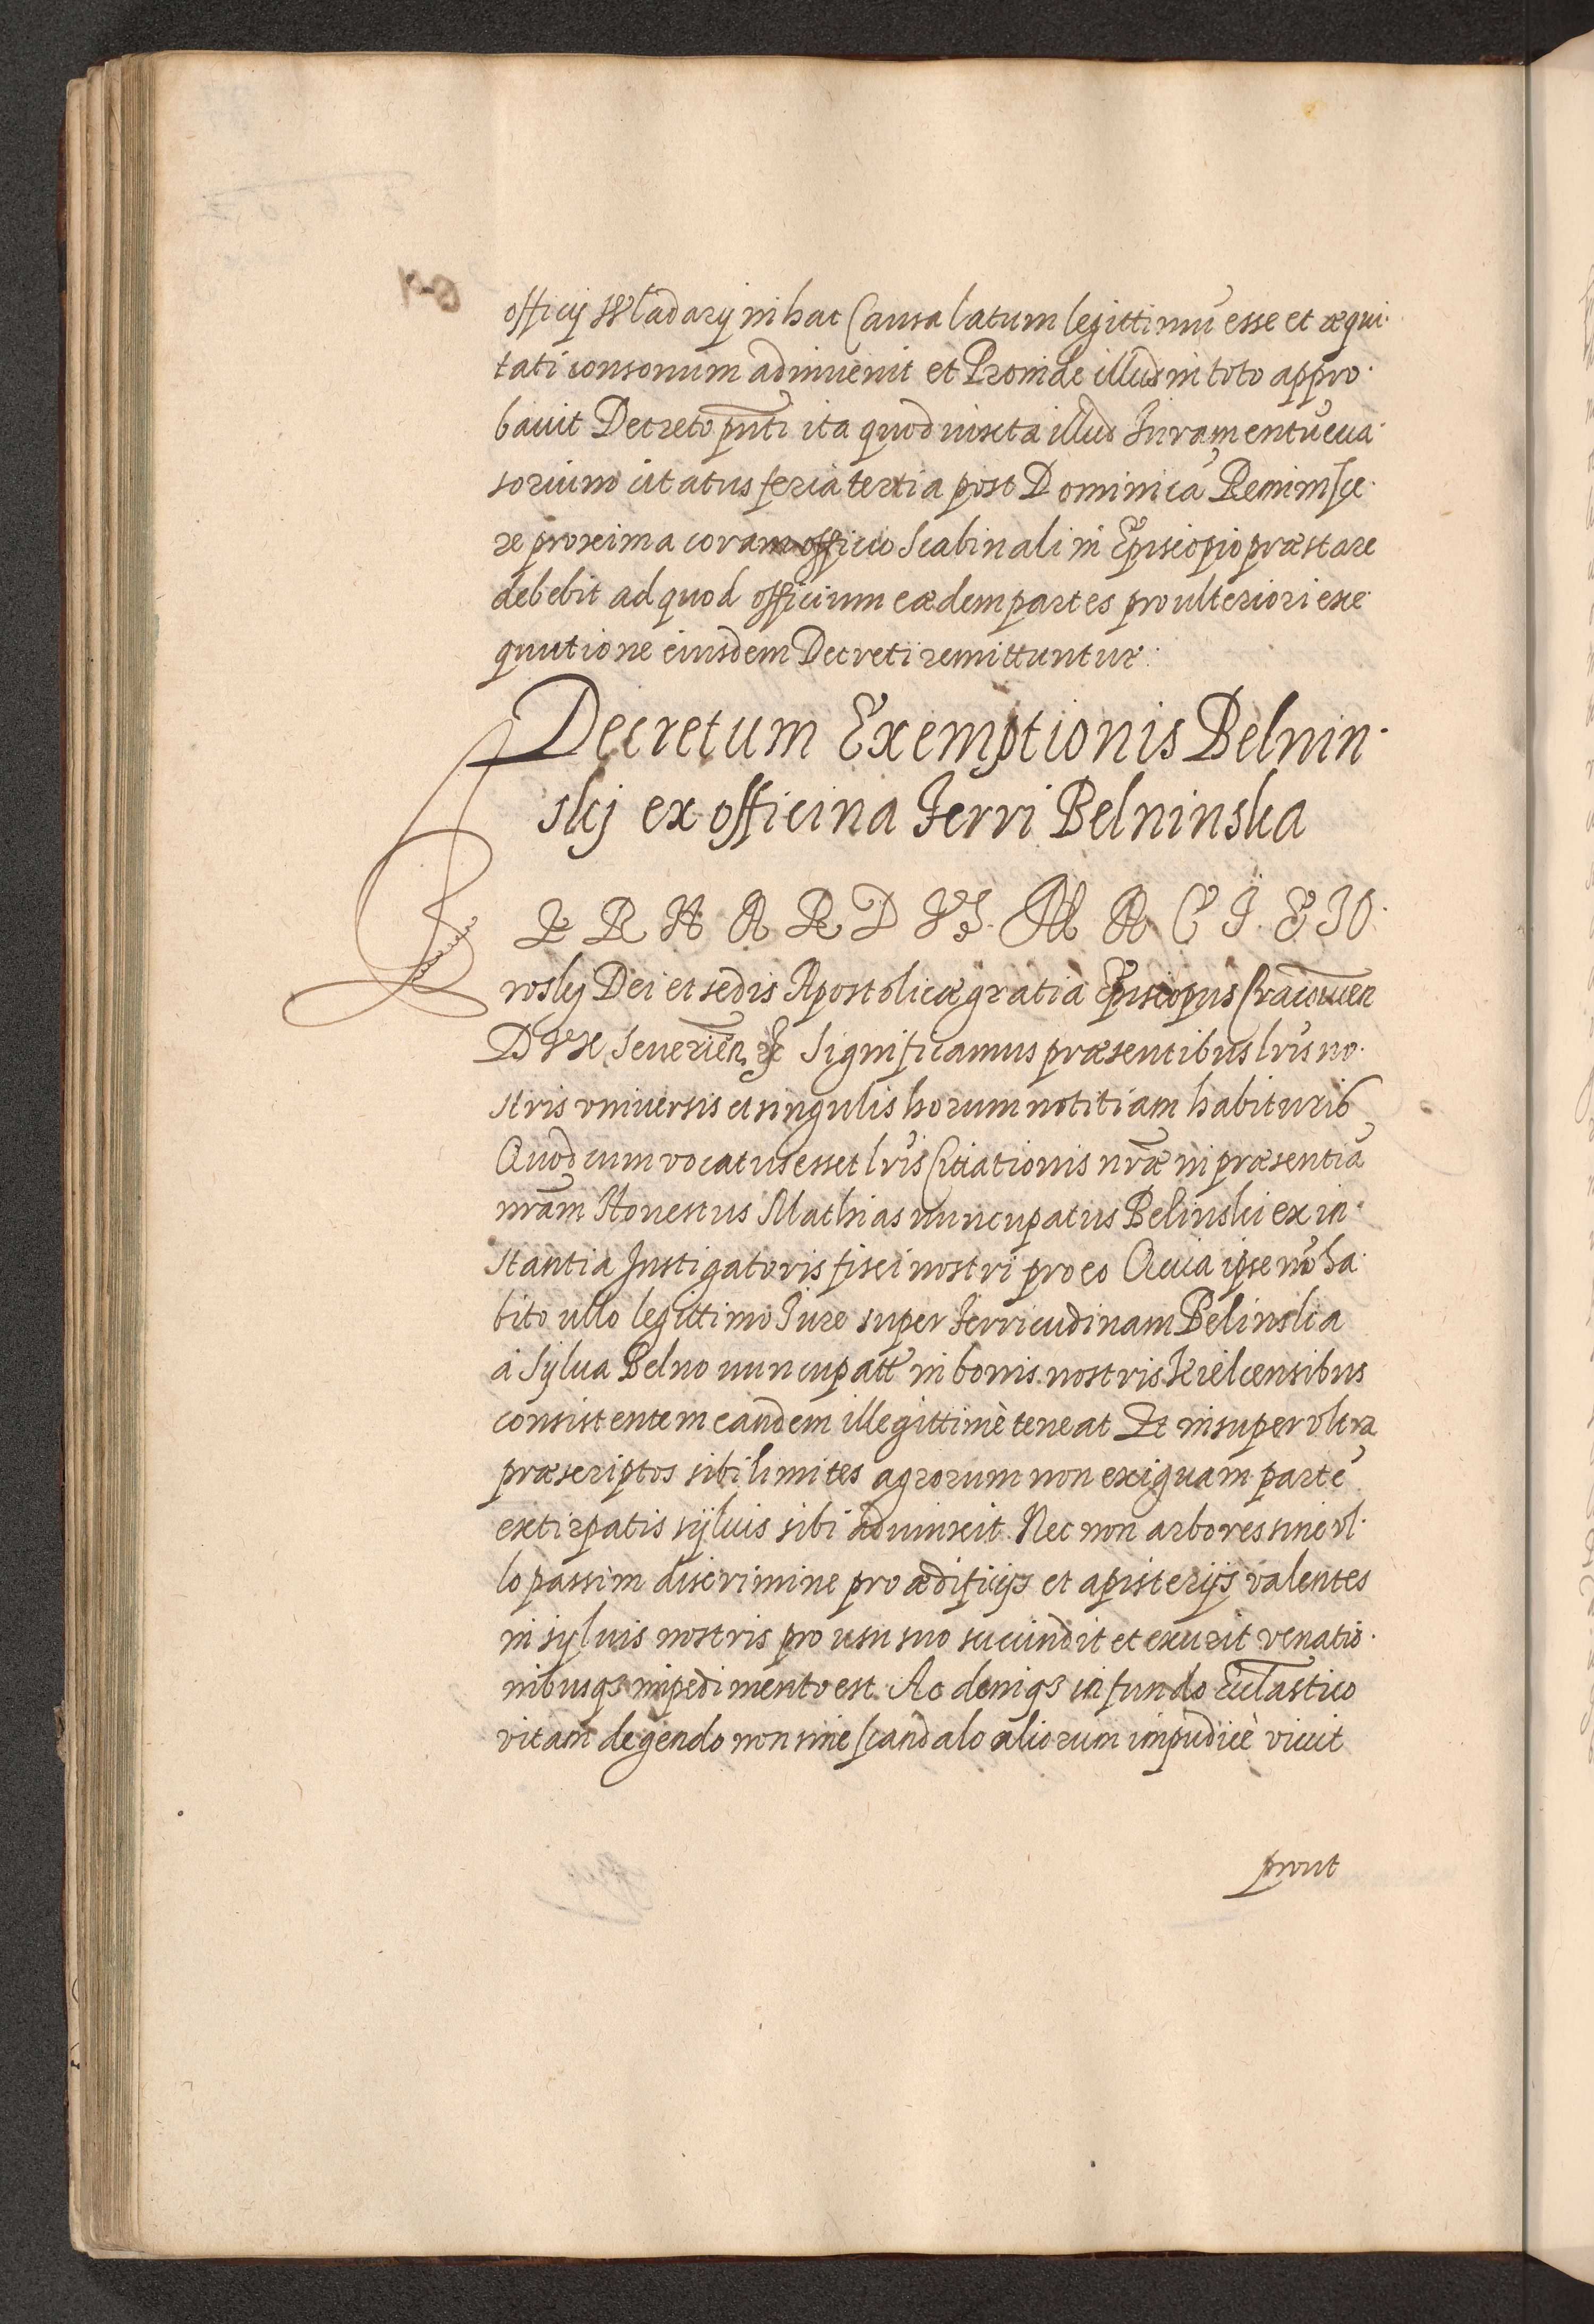 officij Wladarij in hac Causa latum legittimũ esse et æqui-
tati consonum adinuenit et Proinde illud in toto appro-
bauit Decreto pñti ita quod iuxta illud Iuramentũ eua-
sorium citatus feria tertia post Dominicã Reminisce-
re proxima coram officio Scabinali in Episcopio præstare
debebit ad quod officium eædem partes pro ulteriori exe-
quutione eiusdem Decreti remittuntur.
Decretum Exemptionis Belnin-
skj ex officina Ferri Belninska
BERNARDVS MACIEIO-
wsky Dei et sedis Apostolicæ gratia Episcopus Cracouień
DVX Seuerień &c Significamus præsentibus lris no-
stris vniuersis et singulis horum notitiam habituris
Quod cum vocatus esset lris Citationis nræ in præsentiã
nrãm Honestus Mathias nuncupatus Belinski ex in-
stantia Instigatoris fisci nostri pro eo Quia ipse nõ ha-
bito ullo legittimo Iure super ferricudinam Belinska
à Sylua Belno nuncupatt in bonis nostris Kielcensibus
consistentem eandem illegittimè teneat Et insuper vltra
præscriptos sibi limites agrorum non exiguam partẽ
extirpatis syluis sibi adiunxit. Nec non arbores sine vl-
lo passim discrimine pro ædificijs et apisterijs valentes
in syluis nostris pro usu suo succindit et exurit venatio-
nibusqȝ impedimento est. Ac deniqȝ in fundo Eccl̃astico
vitam degendo non sine scandalo aliorum impudicè vixit
prout